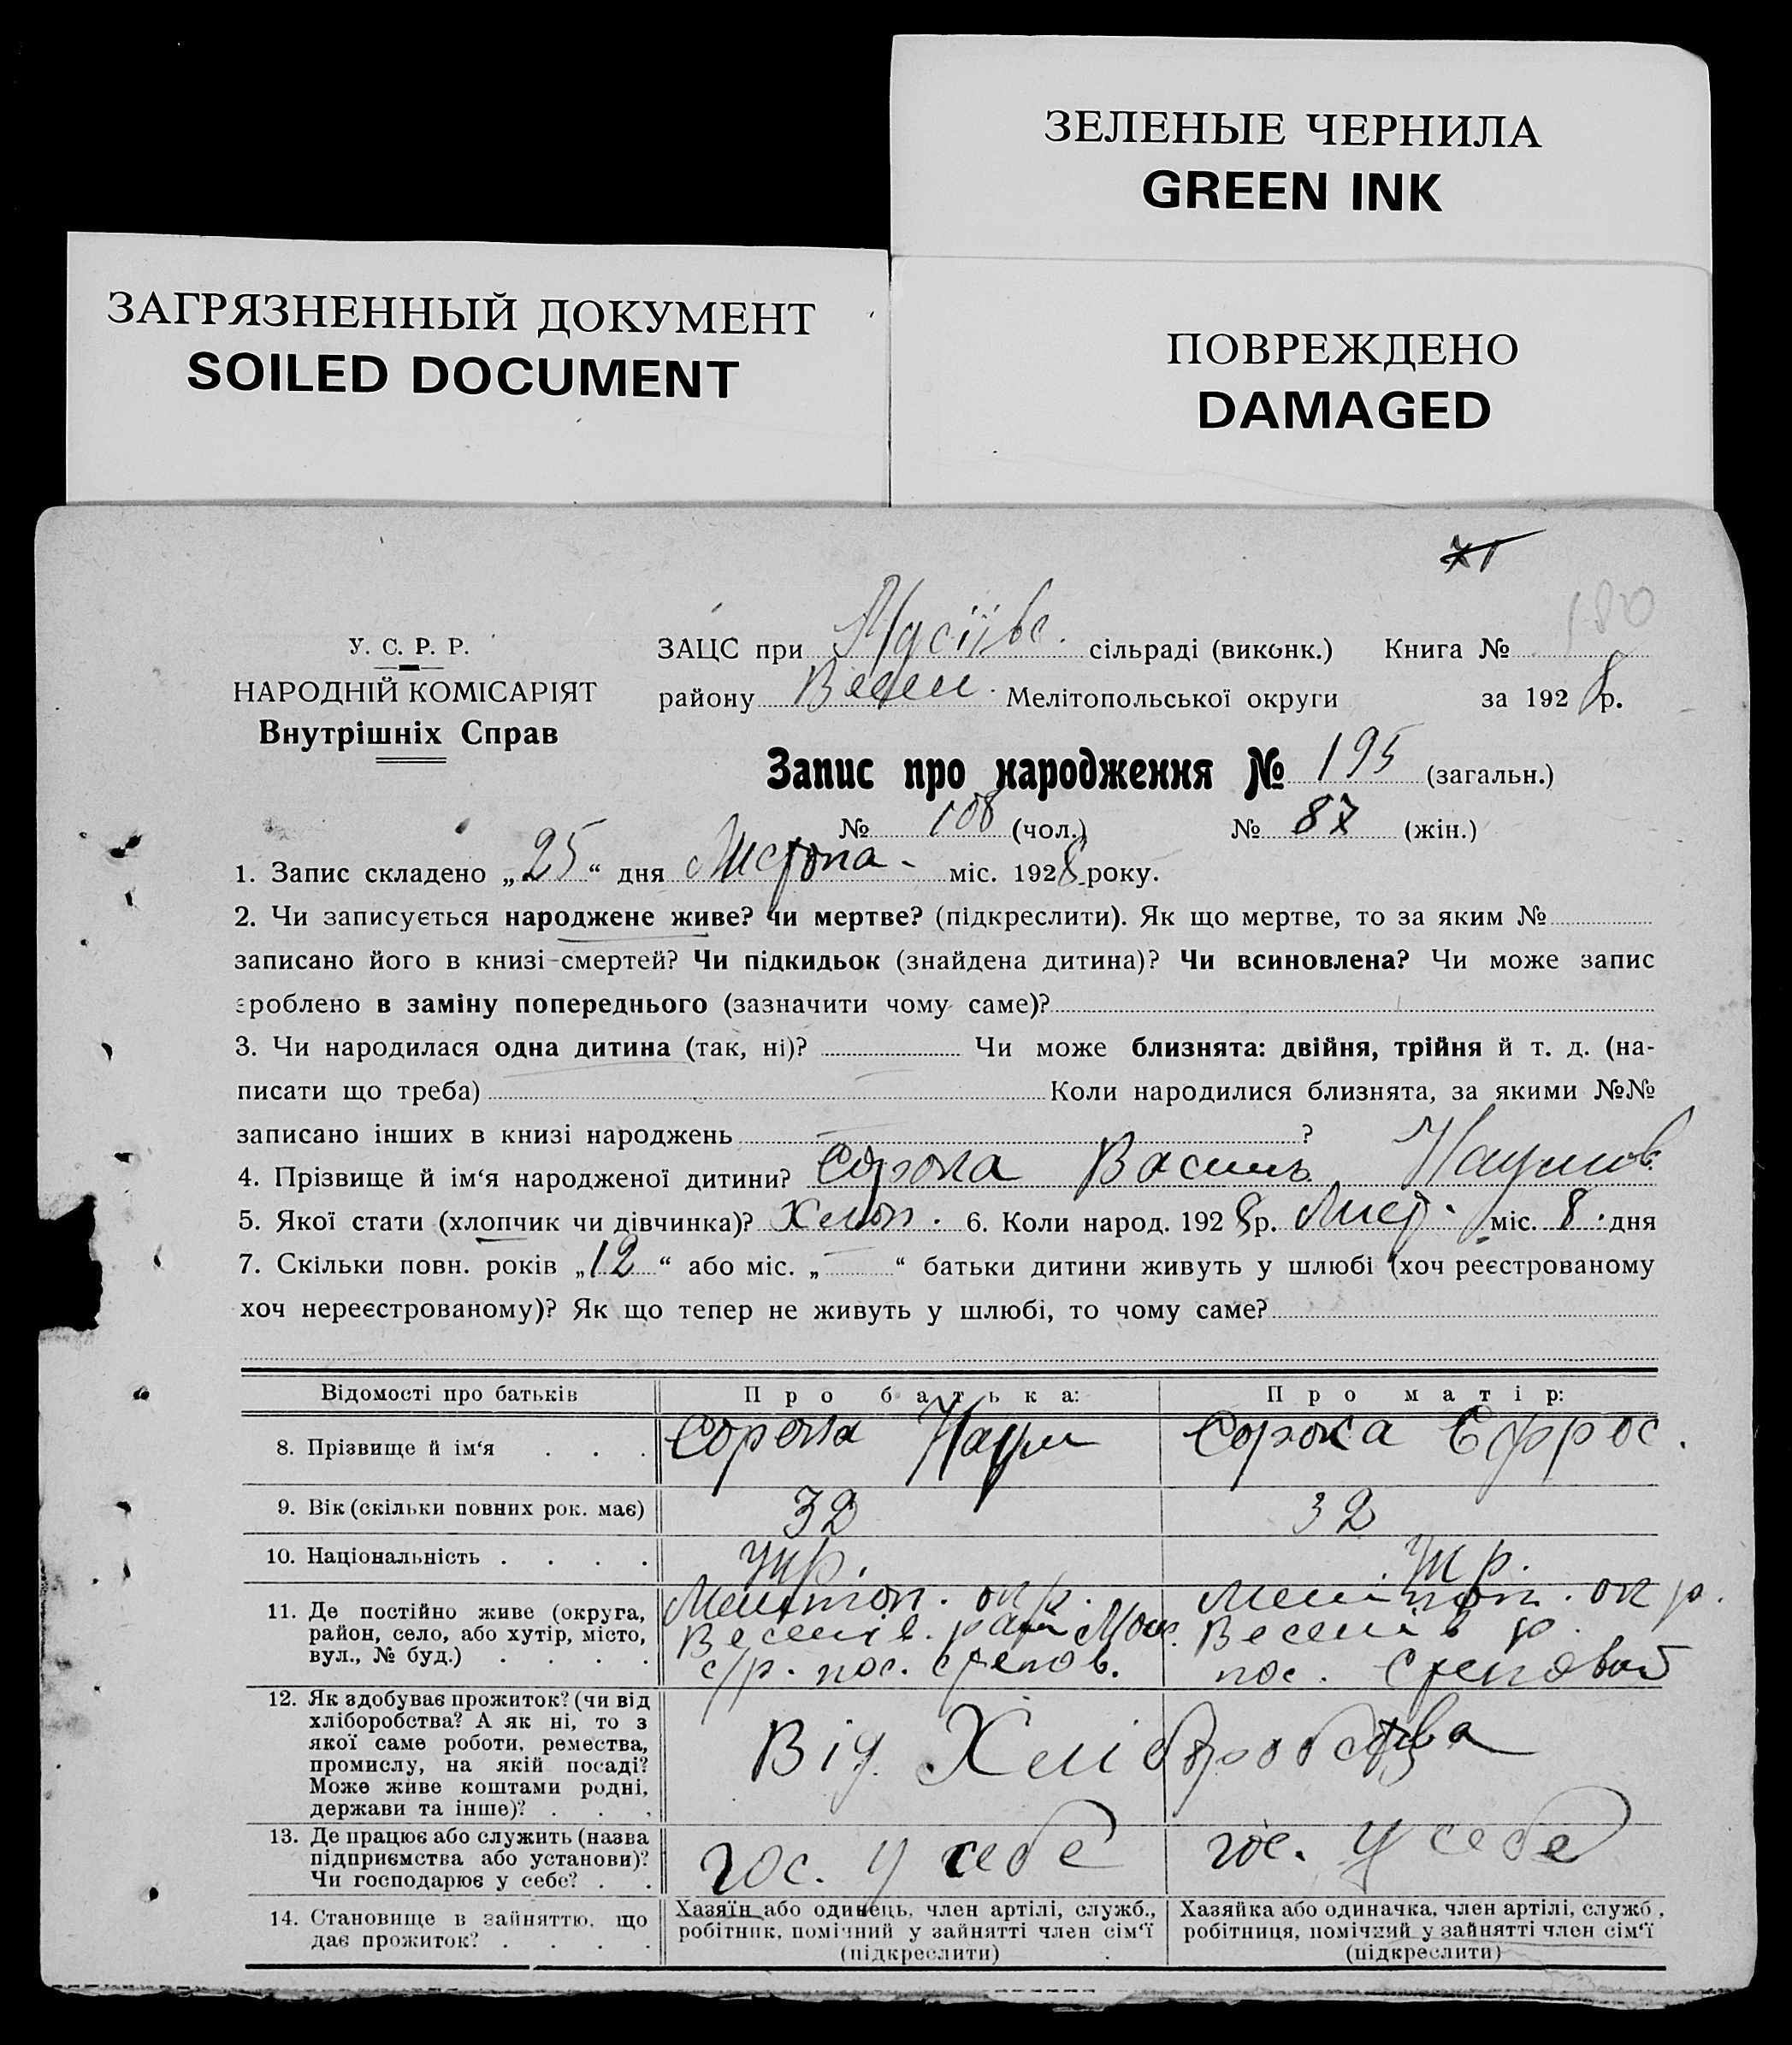 ЗЕЛЕНЫЕ ЧЕРНИЛА
GREEN INK
ЗАГРЯЗНЕННЫЙ ДОКУМЕНТ
SOILED DOCUMENT
ПОВРЕЖДЕНО
DAMAGED
180
У. С. Р. Р.
НАРОДНІЙ КОМІСАРІЯТ
Внутрішніх Справ
ЗАЦС при сільраді (виконк.) Книга №
району Весел. Мелітопольської округи за 1928 р.
Запис про народження № 195 (загальн.)
№ 108 (чол.) № 87 (жін.)
1. Запис складено „25“ дня Листопа- міс. 1928 року.
2. Чи записується народжене живе? чи мертве? (підкреслити). Як що мертве, то за яким №
записано його в книзі смертей? Чи підкидьок (знайдена дитина)? Чи всиновлена? Чи може запис
зроблено в заміну попереднього (зазначити чому саме)?
3. Чи народилася одна дитина (так, ні)? Чи може близнята: двійня, трійня й т. д. (на-
писати що треба) Коли народилися близнята, за якими №№
записано інших в книзі народжень ?
4. Прізвище й ім‘я народженої дитини? Сорока Василь Наумов.
5. Якої стати (хлопчик чи дівчинка)? Хлоп. 6. Коли народ. 1928 р. Лист. міс. 8. дня
7. Скільки повн. років „12“ або міс. „—“ батьки дитини живуть у шлюбі (хоч реєстрованому
хоч нереєстрованому)? Як що тепер не живуть у шлюбі, то чому саме?
Відомості про батьків Про батька: Про матір:
8. Прізвище й ім‘я . . . Сорока Наум Сорока Ефрос.
9. Вік (скільки повних рок. має) 32 32
10. Національність . . . . Укр. Укр.
11. Де постійно живе (округа, Мелітоп. окр. Мелітоп. окр.
район, село, або хутір, місто, Веселів. рай Веселів р.
вул., № буд.) . . . . с/р. пос. степов. пос. Степовой
12. Як здобуває прожиток? (чи від
хліборобства? А як ні, то з
якої саме роботи, ремества,
промислу, на якій посаді?
Може живе коштами родні,
держави та інше)? . . .
Від Хліборобства
13. Де працює або служить (назва
підприємства або установи)?
Чи господарює у себе? . .
гос. у себе гос. у себе
14. Становище в зайняттю, що
дає прожиток? . . . .
Хазяїн або одинець, член артілі, служб.,
робітник, помічний у зайнятті член сім‘ї
(підкреслити)
Хазяйка або одиначка, член артілі, служб.,
робітниця, помічний у зайнятті член сім‘ї
(підкреслити)